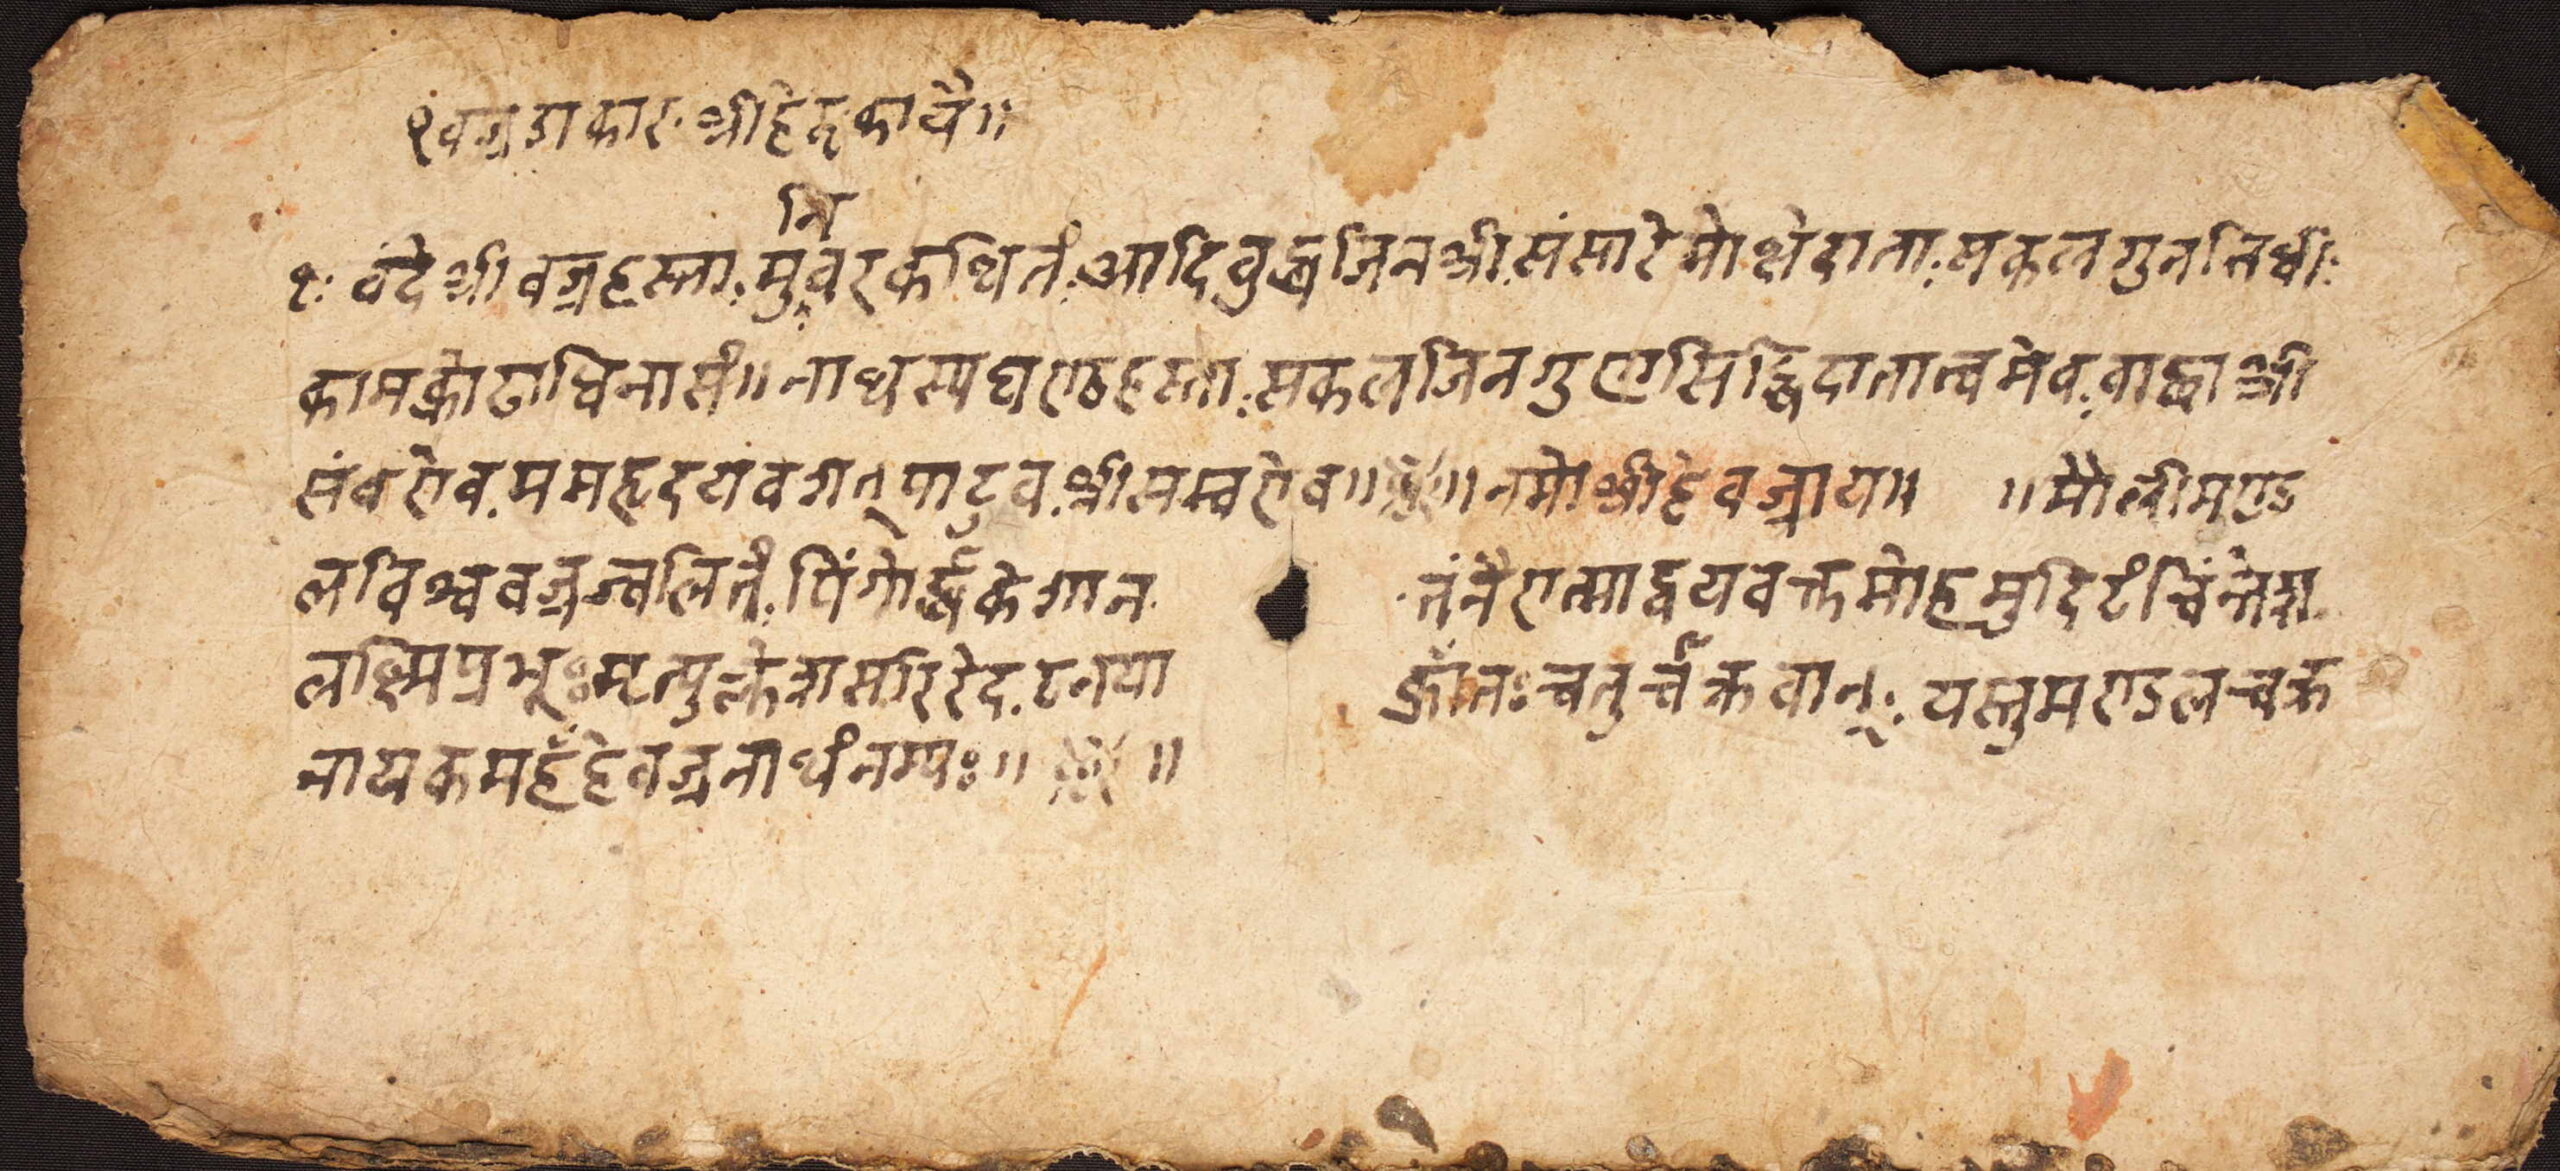 १वज्रडाकार.श्रीहेरुकायै॥
नि
१: वंदेश्रीवज्रहस्ता.मुवरकथितं.आदिवुद्धजिनश्री.संसारेमोक्षेदाता.सकलगुननिधीः
कामक्रोढाविनासं॥नाथस्यघण्ठहस्ता.सकलजिनगुणसिद्धिदातात्वमेव.वाछाश्री
संवरोव.ममहृदयंवगत्पादुव.श्रीसम्वरोव॥ ॥नमोश्रीहेवज्राय॥ ॥मौलीमण्ड
लविश्ववज्रज्वलितं.पिंगोर्द्धकेशान तंनैरात्माद्वयवक्त
लक्ष्मिप्रभूः क्राँतःचतुर्चक्रवान्.यस्तुमण्डलचक्र
नायकमहँहेवज्रनाथंनम्यः॥ ॥